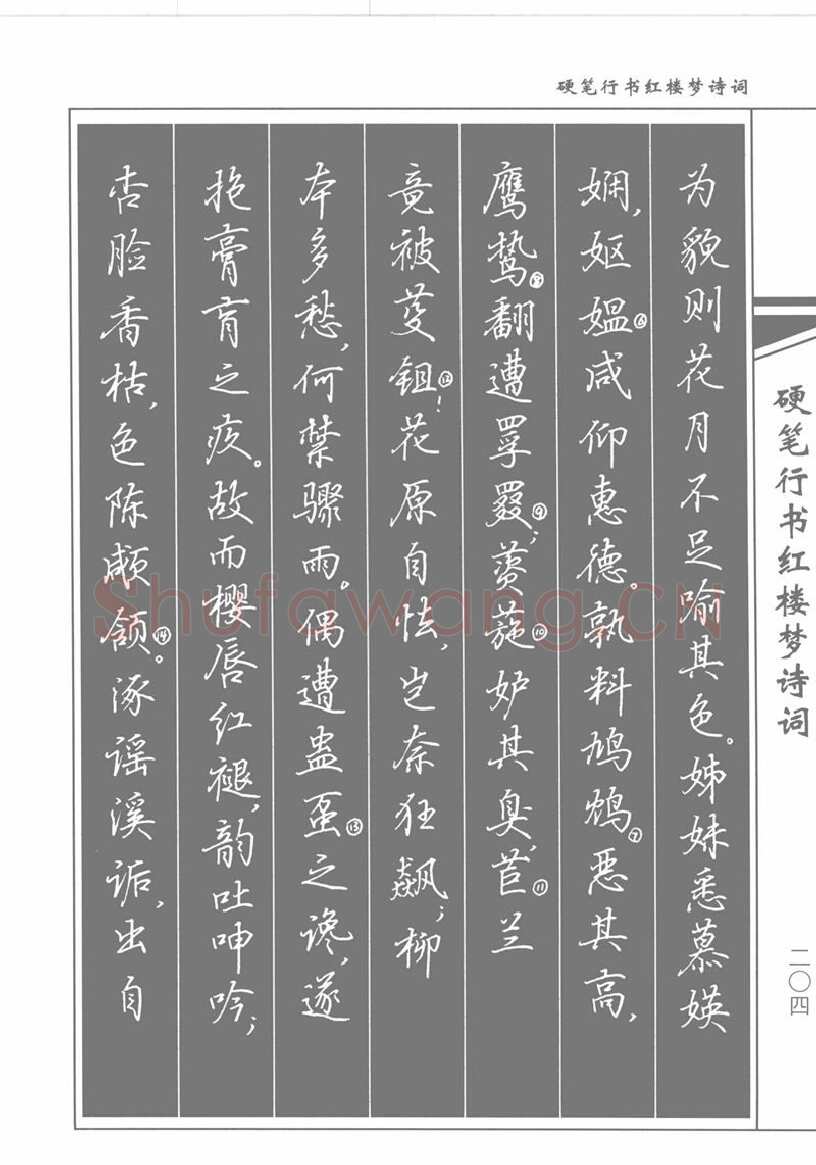 硬笔行书红楼梦诗词
为貌则花月不足喻其色。姊妹悉慕媖
娴,妪媪⑥咸仰惠德。孰料鸠鸩⑦恶其高,
鹰鸷⑧翻遭罦罬⑨;薋葹⑩妒其臭,茝⑪兰
竟被芟钼⑫!花原自怯,岂奈狂飙;柳
本多愁,何禁骤雨。偶遭蛊虿⑬之谗,遂
抱膏肓之疚。故而樱唇红褪,韵吐呻吟;
杏脸香枯,色陈顑颔⑭。诼谣溪诟,出自
硬笔行书红楼梦诗词
二〇四
Shufawang.CN